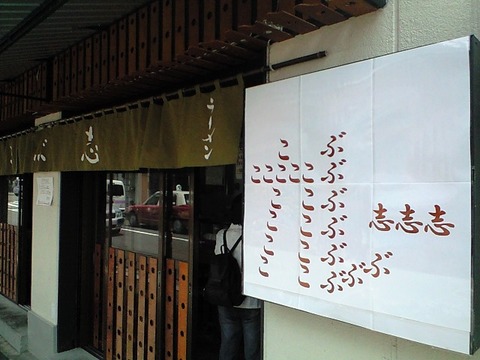 ぶ志
ラーメン
こ ぶ
ここここ ぶ
こ こ ぶ
こ こ ぶ 志志志
こ こ ぶ
こ こ ぶぶぶ